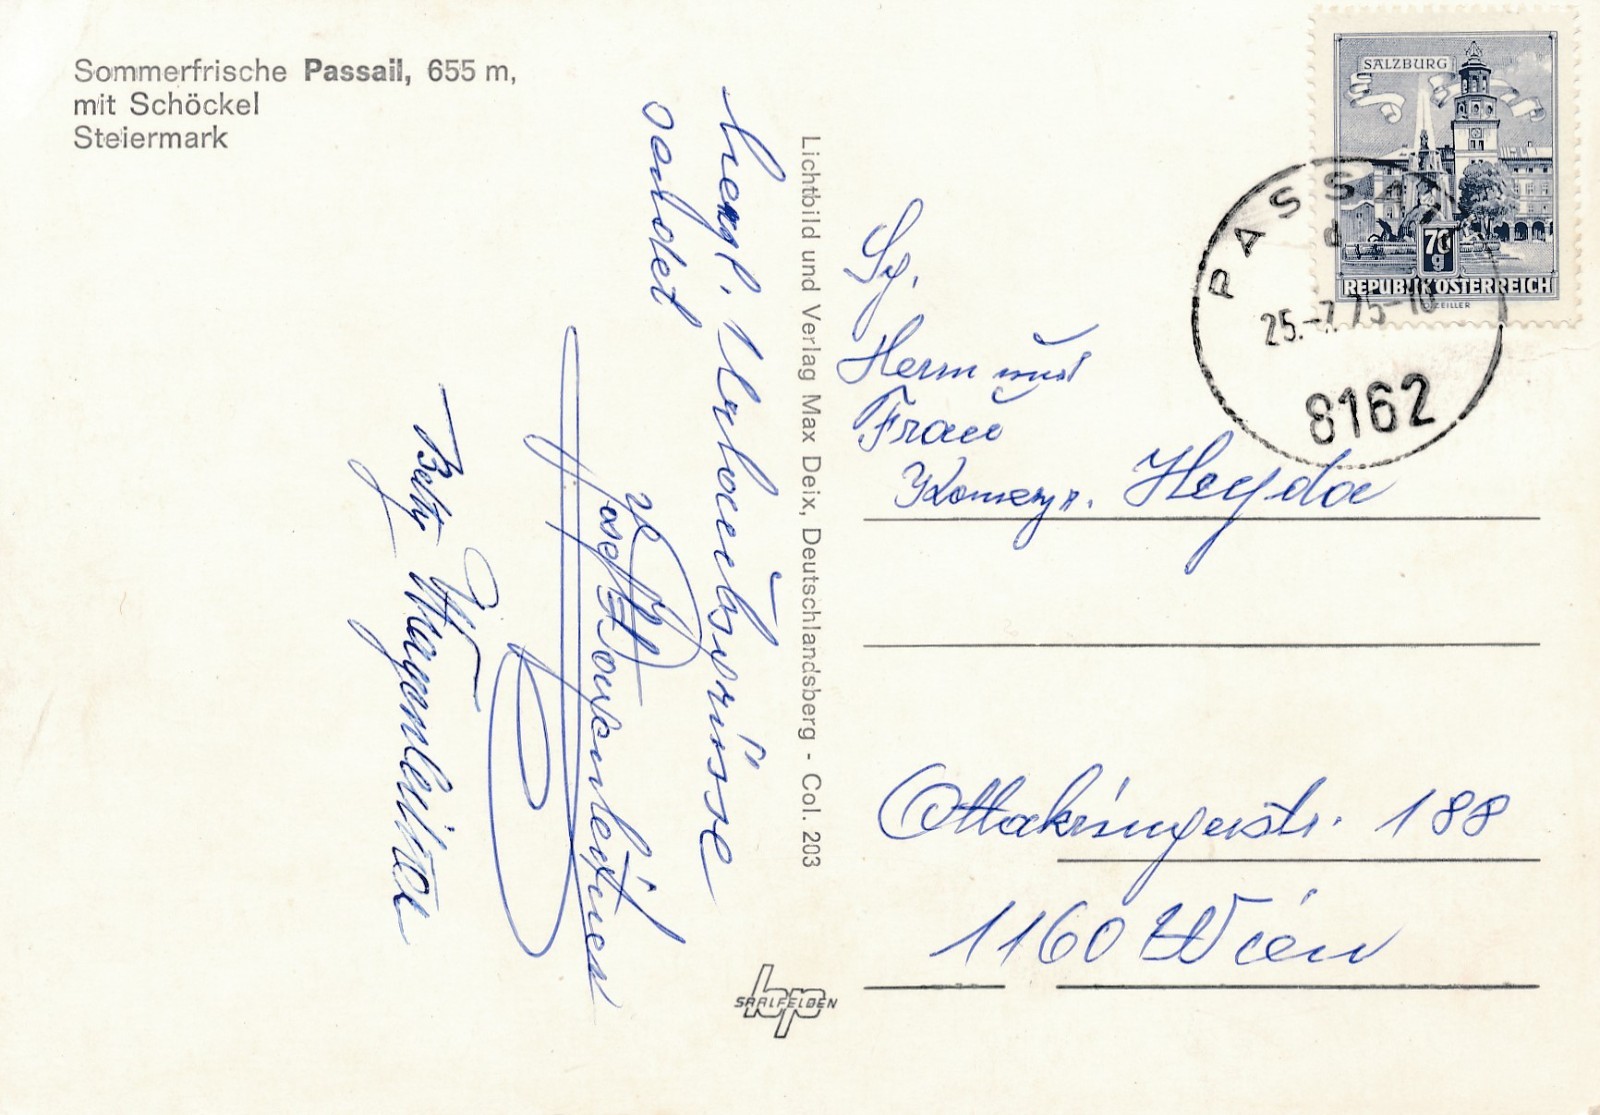 Sommerfrische Passail, 655 m,
mit Schöckel
Steiermark
herzl. Urlaubsgrüsse
sendet
Josef
Lichtbild und Verlag Max Deix, Deutschlandsberg - Col. 203
SAALFELDEN
SALZBURG
70
g
REPUBLIK ÖSTERREICH
ZEILLER
PASSAIL
25.-7.75-10
8162
Herrn und
Frau
Heyda
Ottakringerstr. 188
1160 Wien